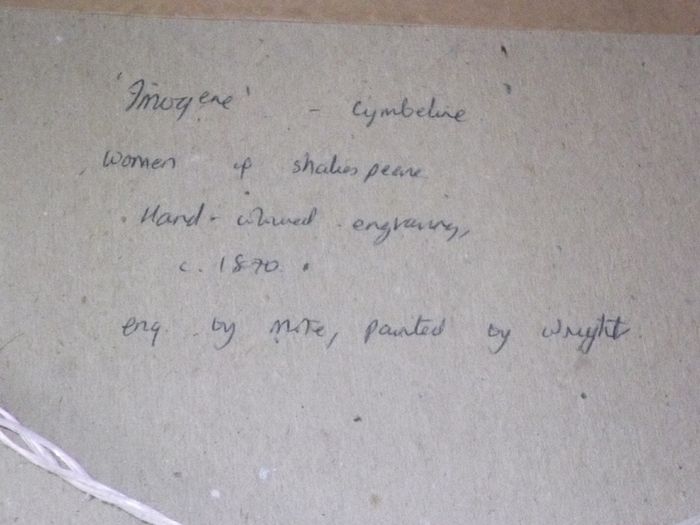 'Imogene' - Cymbeline
Women of Shakespeare
Hand-coloured engraving,
c. 1870.
eng. by Mote, painted by Wright